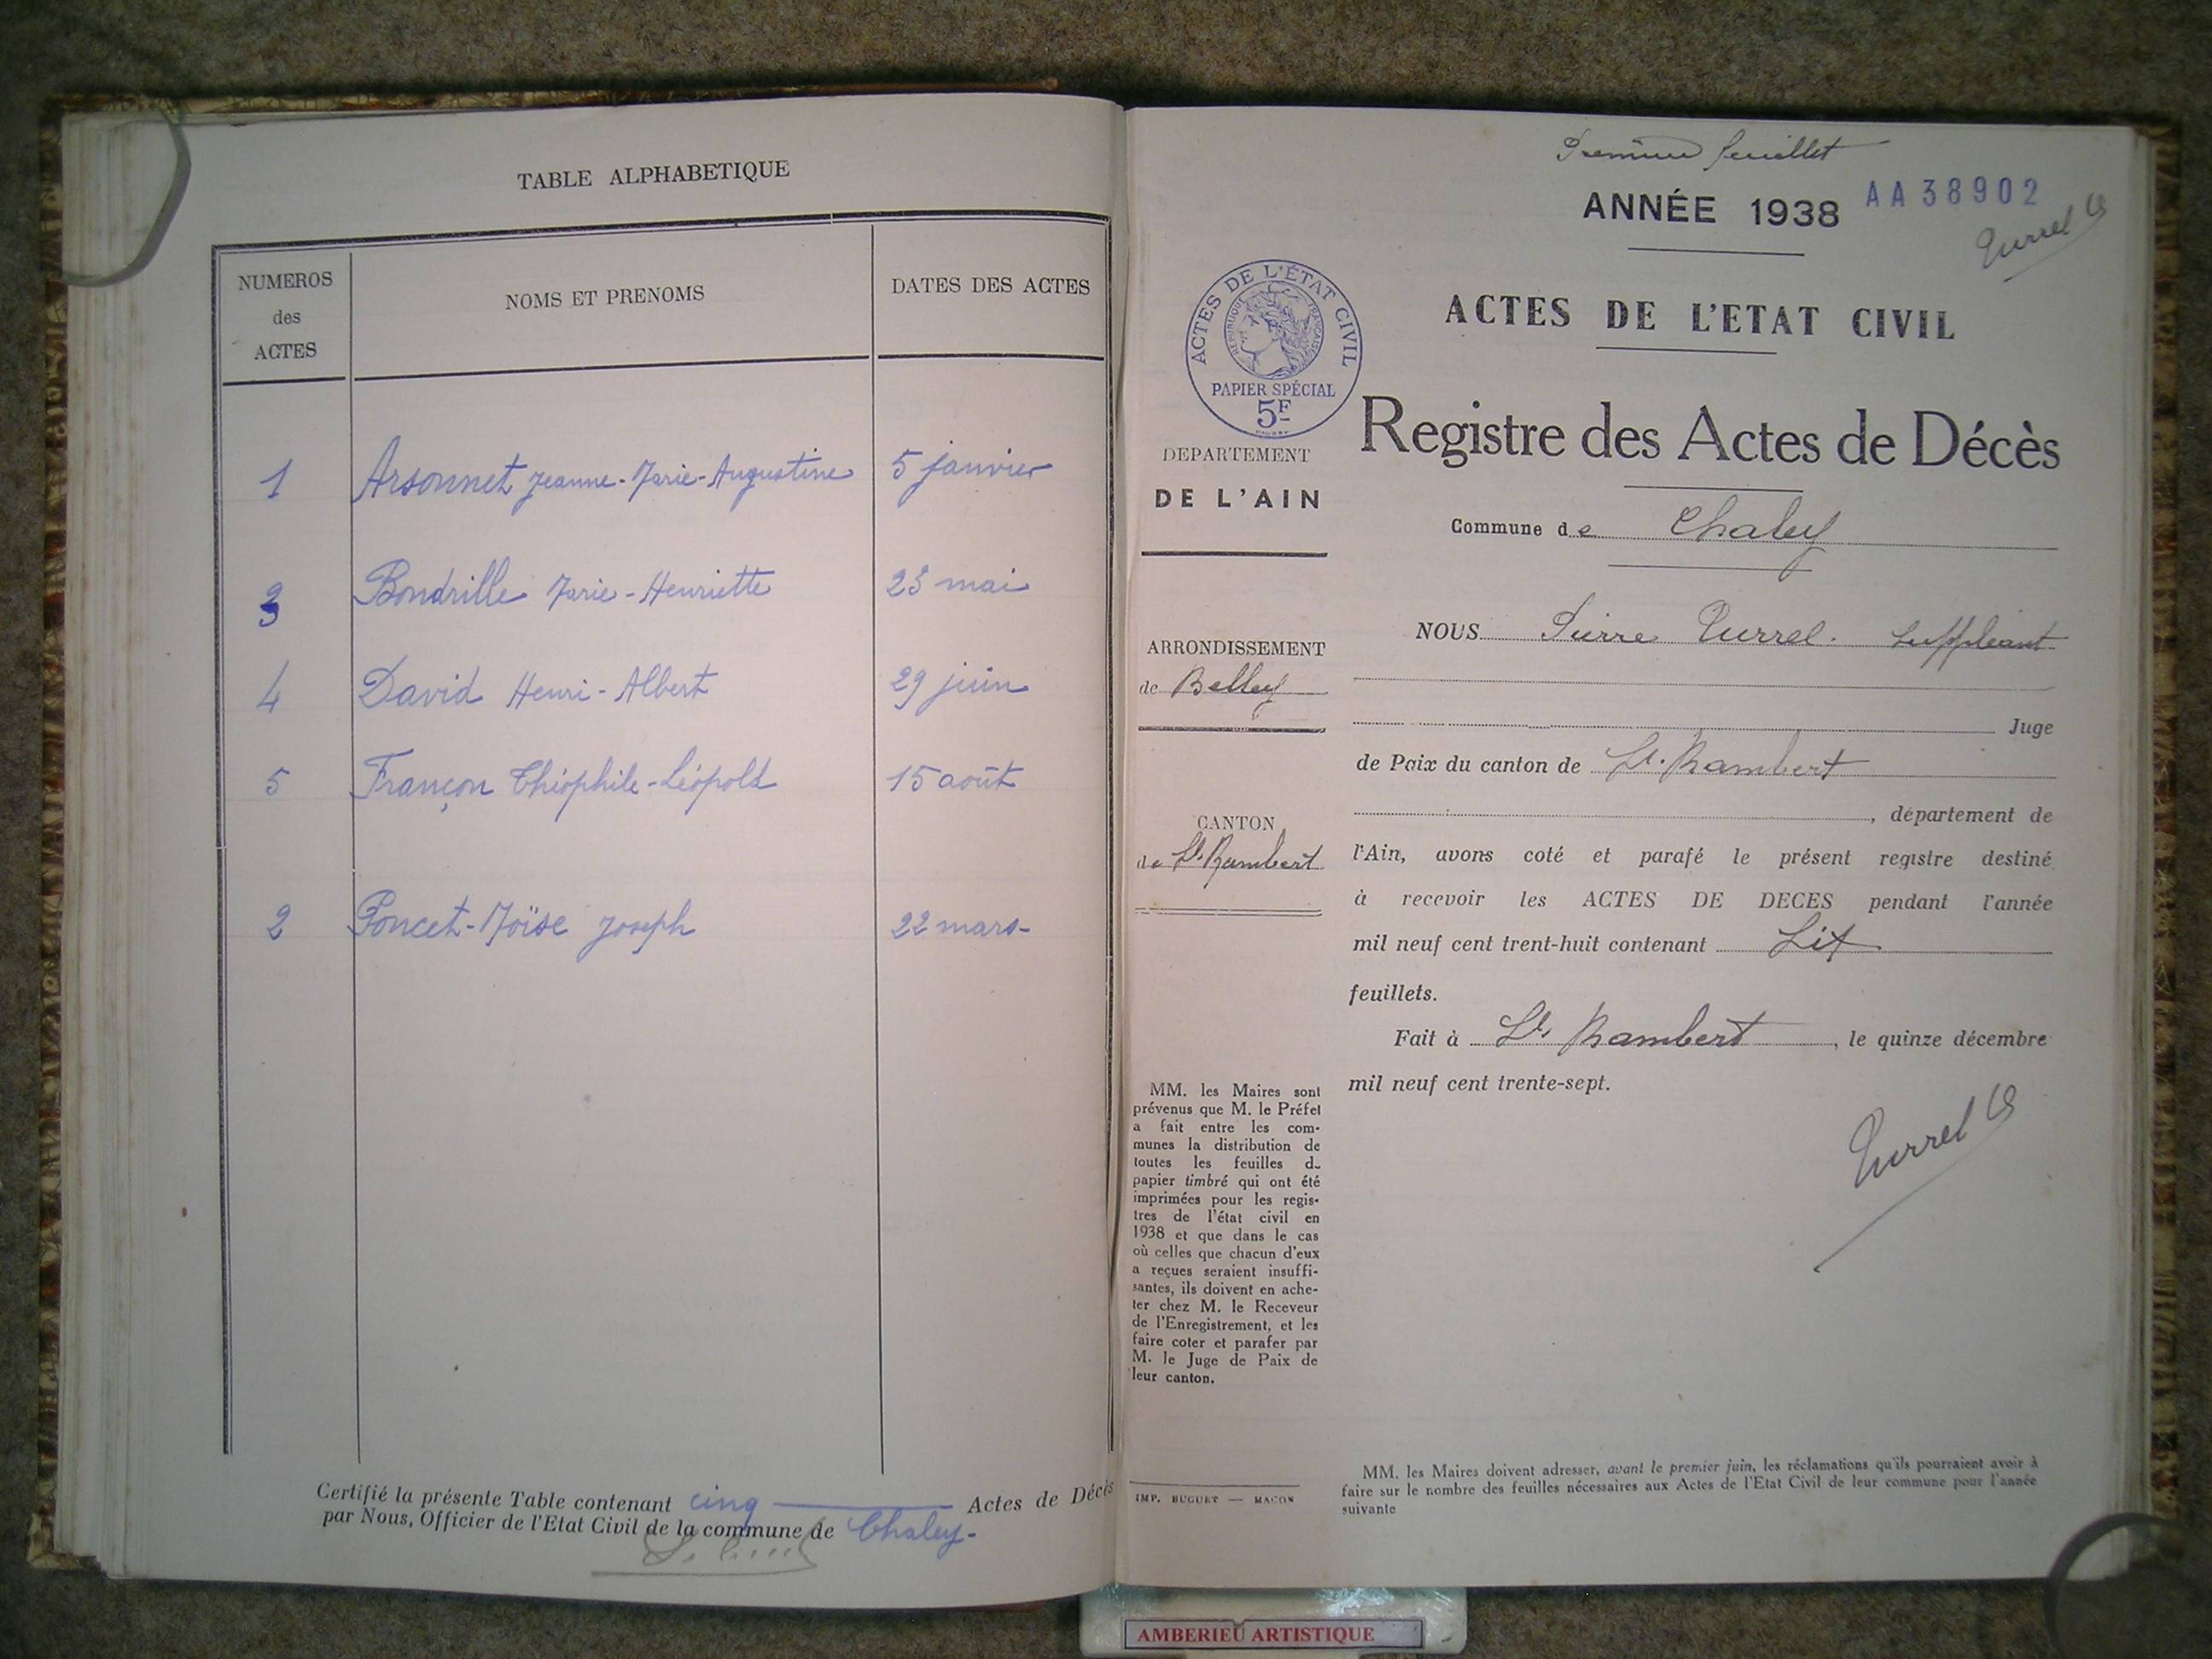 TABLE ALPHABETIQUE
NUMEROS des ACTES
NOMS ET PRENOMS
DATES DES ACTES
1 Arsonnet Jeanne-Marie-Augustine 5 janvier
3 Bondrille Marie-Henriette 23 mai
4 David Henri-Albert 29 juin
5 Françon Théophile-Léopold 15 août
2 Poncet-Moïse Joseph 22 mars-
Certifié la présente Table contenant cinq Actes de Décès
par Nous, Officier de l'Etat Civil de la commune de Chaley-
Premier feuillet
ANNÉE 1938
AA38902
Turrel
ACTES DE L'ÉTAT CIVIL
RÉPUBLIQUE FRANÇAISE
PAPIER SPÉCIAL
5F
ACTES DE L'ETAT CIVIL
Registre des Actes de Décès
DEPARTEMENT
DE L'AIN
Commune de Chaley
ARRONDISSEMENT
de Belley
CANTON
de St Rambert
NOUS Pierre Turrel. Suppléant
Juge
de Paix du canton de St. Rambert
, département de
l'Ain, avons coté et parafé le présent registre destiné
à recevoir les ACTES DE DECES pendant l'année
mil neuf cent trent-huit contenant Six
feuillets.
Fait à St Rambert, le quinze décembre
mil neuf cent trente-sept.
Turrel
MM. les Maires sont
prévenus que M. le Préfet
a fait entre les com-
munes la distribution de
toutes les feuilles de
papier timbré qui ont été
imprimées pour les regis-
tres de l'état civil en
1938 et que dans le cas
où celles que chacun d'eux
a reçues seraient insuffi-
santes, ils doivent en ache-
ter chez M. le Receveur
de l'Enregistrement, et les
faire coter et parafer par
M. le Juge de Paix de
leur canton.
IMP. BUGUET — MACON
MM. les Maires doivent adresser, avant le premier juin, les réclamations qu'ils pourraient avoir à
faire sur le nombre des feuilles nécessaires aux Actes de l'Etat Civil de leur commune pour l'année
suivante
AMBERIEU ARTISTIQUE